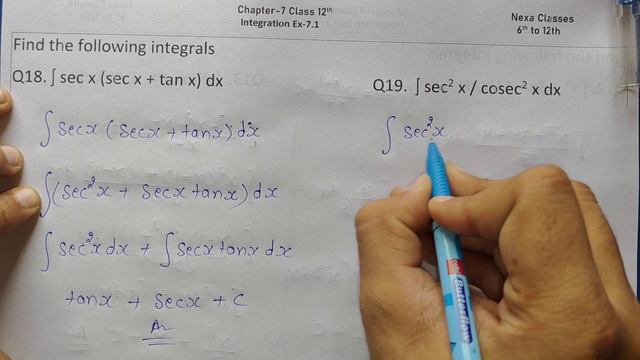 Chapter-7 Class 12th
Integration Ex-7.1
Nexa Classes
6th to 12th
Find the following integrals
Q18. ∫ sec x (sec x + tan x) dx
∫ secx (secx + tanx) dx
∫(sec²x + secx tanx) dx
∫ sec²x dx + ∫ secx tanx dx
tanx + secx + c
Q19. ∫ sec² x / cosec² x dx
∫ sec²x